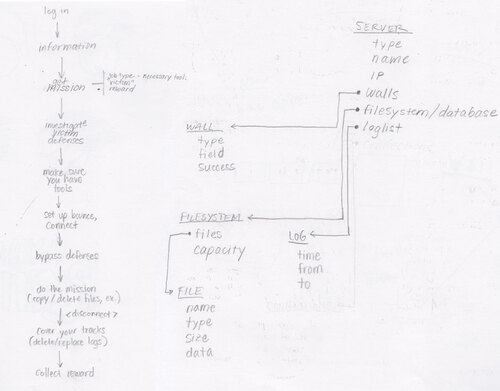 log in
information
get
mission
job type - necessary tools
"victim"
reward
investigate
victim
defenses
make sure
you have
tools
set up bounce,
connect
bypass defenses
do the mission
(copy/delete files, ex.)
<disconnect>
cover your tracks
(delete/replace logs)
collect reward
SERVER
type
name
IP
walls
filesystem/database
loglist
WALL
type
field
success
FILESYSTEM
files
capacity
LOG
time
from
to
FILE
name
type
size
data